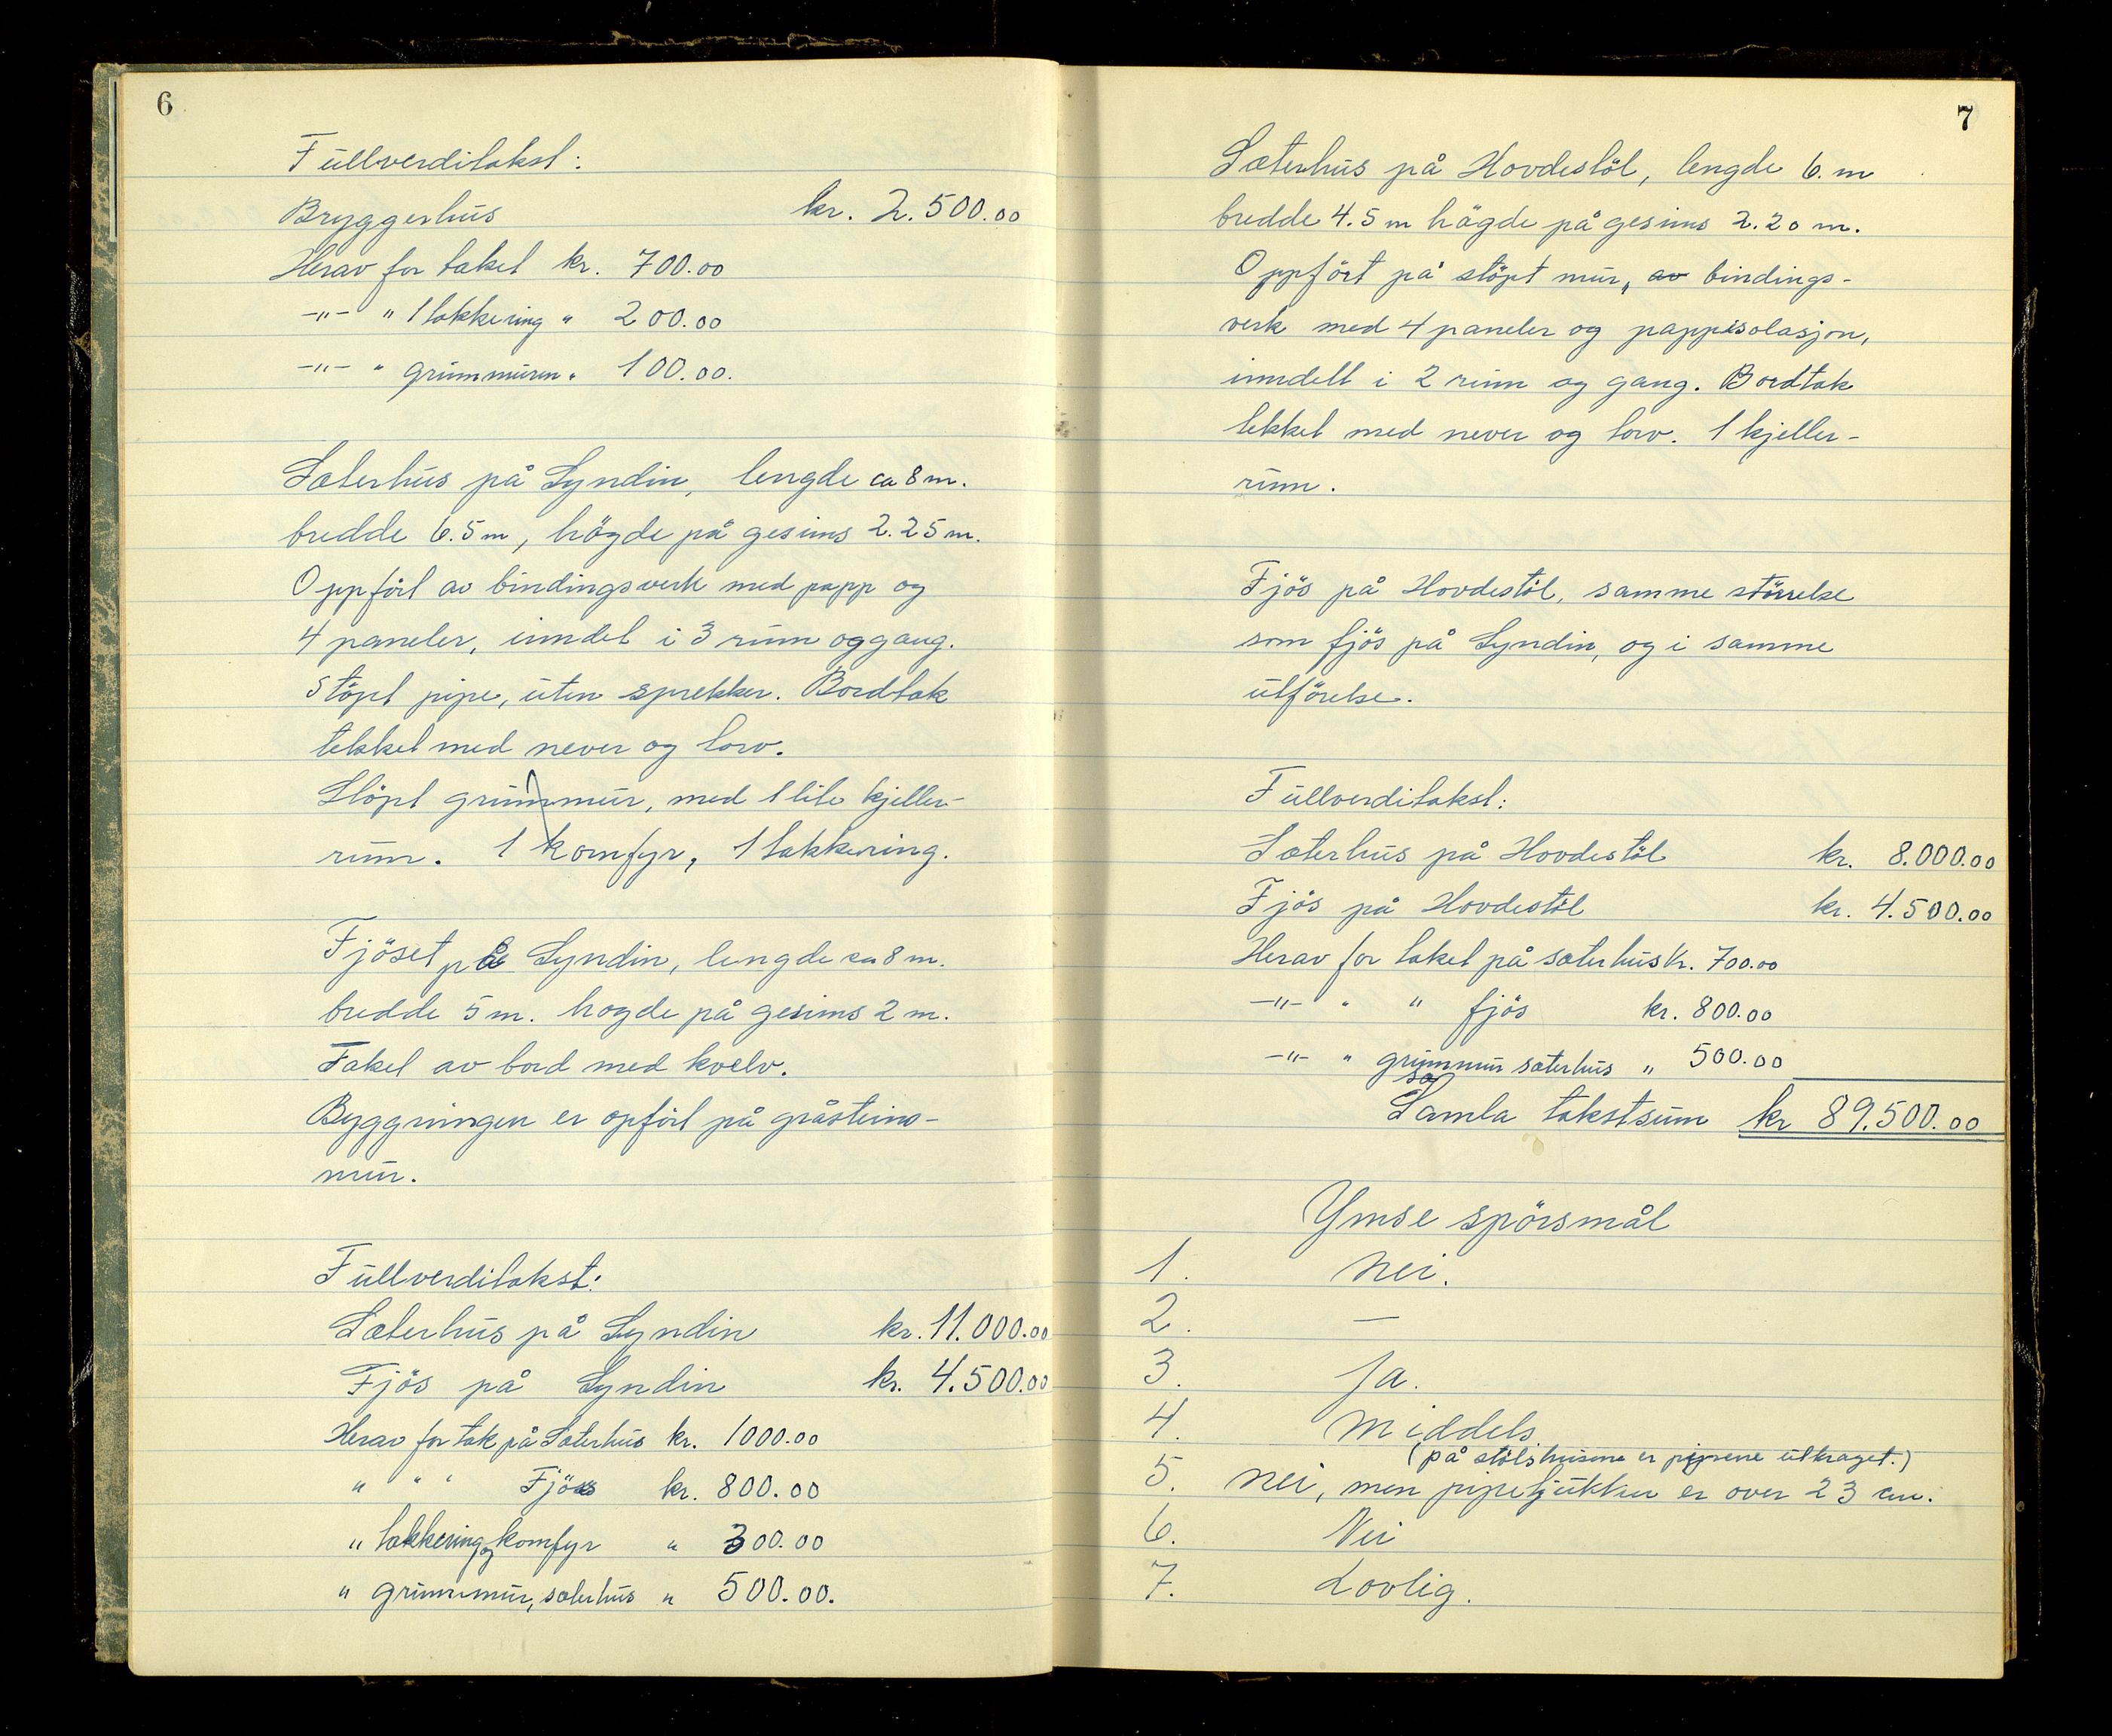 6
Fullverditakst:
Bryggerhus kr. 2.500.00
Herav for taket kr. 700.00
-"- " 1 takkering " 200.00
-"- " grunnmuren " 100.00.
Sæterhus på Syndin, lengde ca 8 m.
bredde 6.5 m, högde på gesims 2.25 m.
Oppfört av bindingsverk med papp og
4 paneler, inndelt i 3 rum og gang.
Stöpt pipe, uten sprekker. Bordtak
tekket med never og torv.
Stöpt grunnmur, med 1 lite kjeller-
rum. 1 komfyr, 1 takkering.
Fjöset på Syndin, lengde ca 8 m.
bredde 5 m. hogde på gesims 2 m.
Taket av bord med kvelv.
Byggningen er opfört på gråsteins-
mur.
Fullverditakst:
Sæterhus på Syndin kr. 11.000.00
Fjös på Syndin kr. 4.500.00
Herav for tak på Sæterhus kr. 1000.00
" " " Fjös kr. 800.00
" takkering og komfyr " 300.00
" grunnmur, sæterhus " 500.00.
7
Sæterhus på Hovdestöl, lengde 6. m
bredde 4.5 m högde på gesims 2.20 m.
Oppfört på stöpt mur, av bindings-
verk med 4 paneler og pappisolasjon,
inndelt i 2 rum og gang. Bordtak
tekket med never og torv. 1 kjeller-
rum.
Fjös på Hovdestöl, samme störrelse
som fjös på Syndin, og i samme
utförelse.
Fullverditakst:
Sæterhus på Hovdestöl kr. 8.000.00
Fjös på Hovdestöl kr. 4.500.00
Herav for taket på sæterhus kr. 700.00
-"- " " fjös kr. 800.00
-"- " grunnmur sæterhus " 500.00
Samla takstsum kr 89.500.00
Ymse spörsmål
1. Nei.
2. —
3. Ja.
4. Middels
(på stölshusene er pipene utkraget.)
5. Nei, men pipetjukken er over 23 cm.
6. Nei
7. Lovlig.